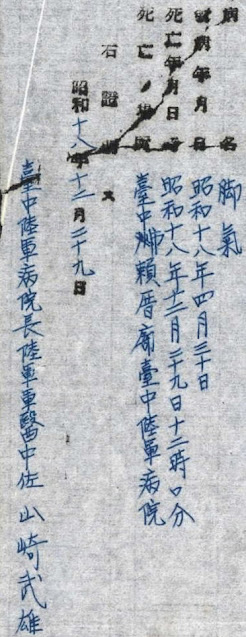 病名 脚氣
發病年月日 昭和十八年四月三十日
死亡年月日時 昭和十八年十二月二十九日十二時〇分
死亡ノ場所 臺中州賴厝廍臺中陸軍病院
右證明ス
昭和十八年十二月二十九日
臺中陸軍病院長陸軍軍醫中佐 山崎武雄